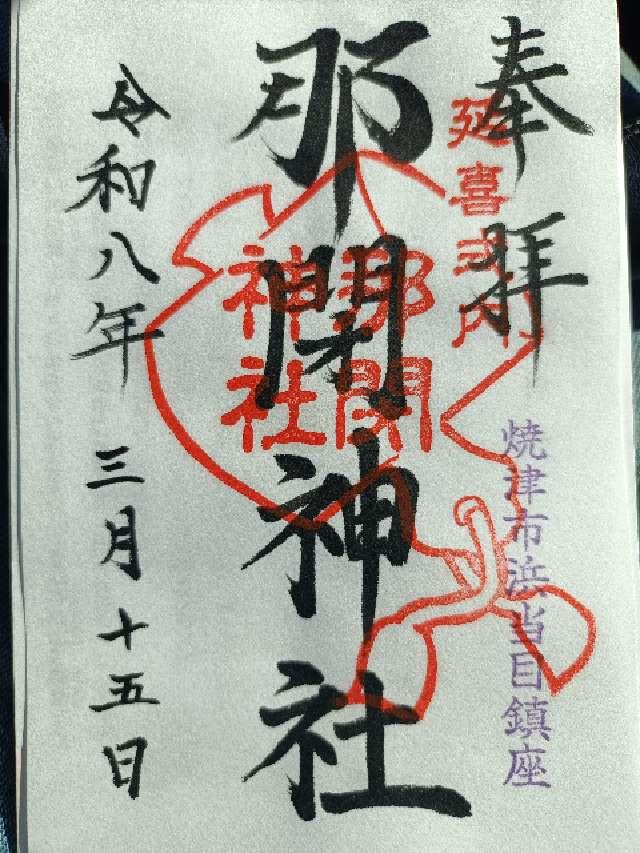 奉拝
延喜式内
焼津市浜当目鎮座
那閇神社
那閇
神社
令和八年三月十五日